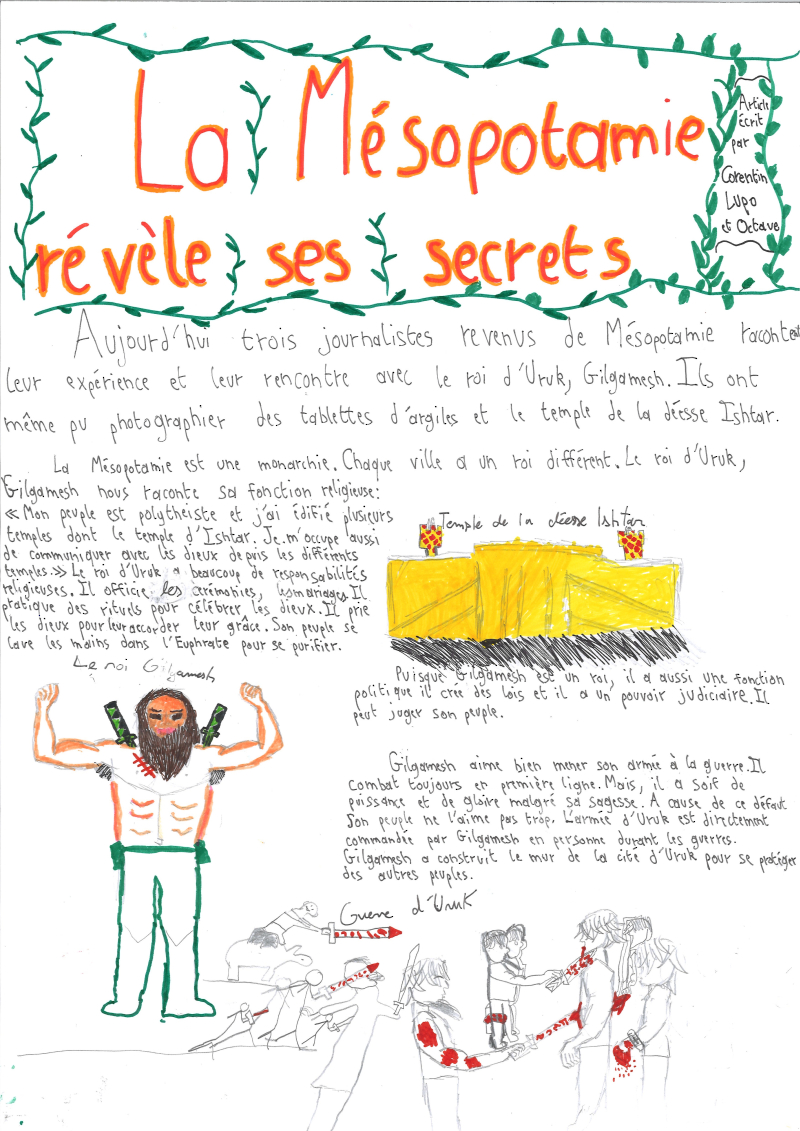 La Mésopotamie
révèle ses secrets
Article
écrit
par
Corentin
Lupo
et Octave
Aujourd'hui trois journalistes revenus de Mésopotamie racontent
leur expérience et leur rencontre avec le roi d'Uruk, Gilgamesh. Ils ont
même pu photographier des tablettes d'argiles et le temple de la déesse Ishtar.
La Mésopotamie est une monarchie. Chaque ville a un roi différent. Le roi d'Uruk,
Gilgamesh nous raconte sa fonction religieuse:
« Mon peuple est polythéiste et j'ai édifié plusieurs
temples dont le temple d'Ishtar. Je m'occupe aussi
de communiquer avec les dieux depuis les différents
temples.» Le roi d'Uruk a beaucoup de responsabilités
religieuses. Il officie les cérémonies, les mariages. Il
pratique des rituels pour célébrer les dieux. Il prie
les dieux pour leur accorder leur grâce. Son peuple se
lave les mains dans l'Euphrate pour se purifier.
Temple de la déesse Ishtar
Le roi Gilgamesh
Puisque Gilgamesh est un roi, il a aussi une fonction
politique il crée des lois et il a un pouvoir judiciaire. Il
peut juger son peuple.
Gilgamesh aime bien mener son armée à la guerre. Il
combat toujours en première ligne. Mais, il a soif de
puissance et de gloire malgré sa sagesse. A cause de ce défaut
son peuple ne l'aime pas trop. L'armée d'Uruk est directement
commandée par Gilgamesh en personne durant les guerres.
Gilgamesh a construit le mur de la cité d'Uruk pour se protéger
des autres peuples.
Guerre d'Uruk